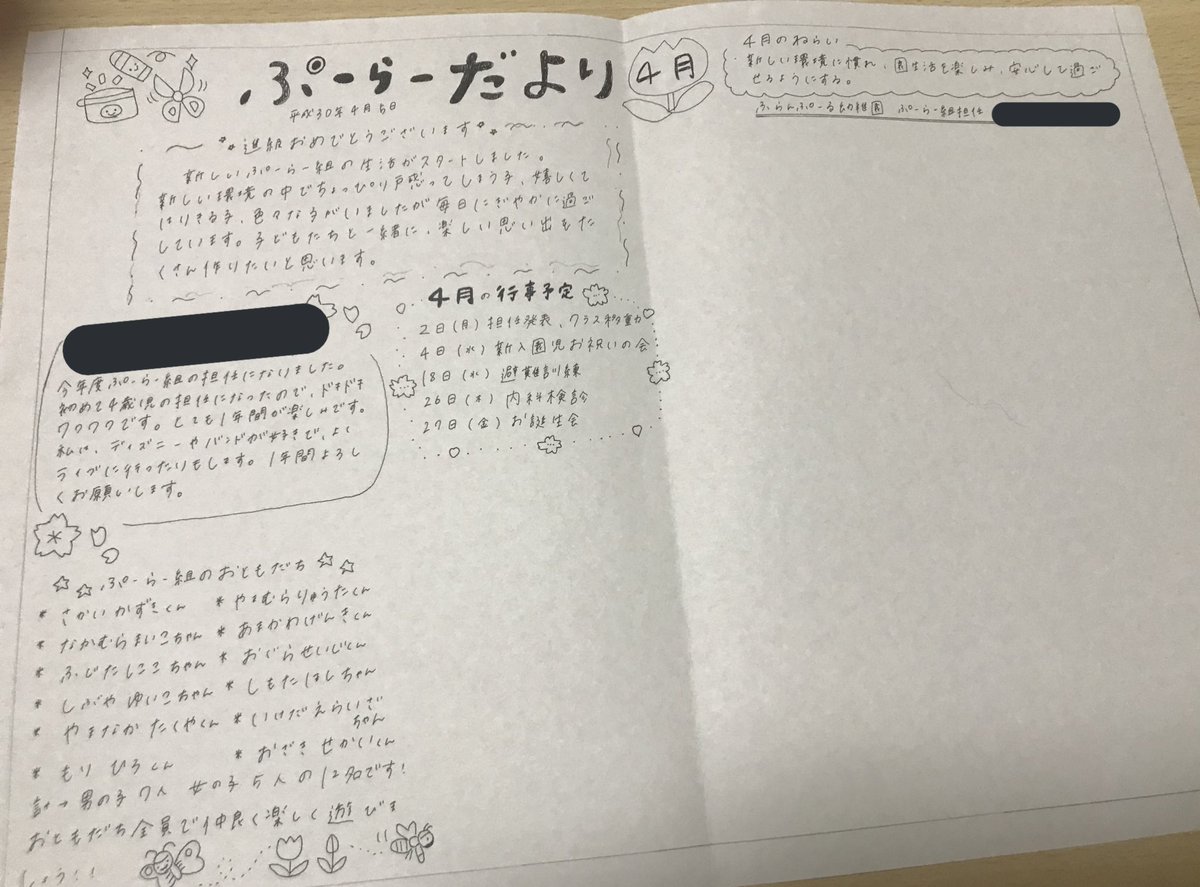 ぷーらーだより
4月
平成30年4月5日
進級おめでとうございます
新しいぷーらー組の生活がスタートしました。
新しい環境の中でちょっぴり戸惑ってしまう子、嬉しくて
はりきる子、色々な子がいましたが毎日にぎやかに過ご
しています。子どもたちと一緒に、楽しい思い出をた
くさん作りたいと思います。
4月のねらい
新しい環境に慣れ、園生活を楽しみ、安心して過ご
せるようにする。
ふらんぷーる幼稚園 ぷーらー組担任
今年度ぷーらー組の担任になりました。
初めて4歳児の担任になったので、ドキドキ
ワクワクです。とても1年間が楽しみです。
私は、ディズニーやバンドが好きで、よく
ライブに行ったりもします。1年間よろし
くお願いします。
4月の行事予定
2日(月)担任発表、クラス移動
4日(水)新入園児お祝いの会
18日(水)避難訓練
26日(木)内科検診
27日(金)お誕生会
ぷーらー組のおともだち
* さかい かずきくん * やまむらりゅうたくん
* なかむらまいこちゃん * あまかわげんきくん
* ふじたしここちゃん * おぐらせいじくん
* しぶや ゆいこちゃん * しもたはしちゃん
* やまなか たくやくん * いけだえらいざ
ちゃん
* もり ひろくん * おざき せかいくん
計→男の子7人 女の子5人の12名です!
おともだち全員で仲良く楽しく遊びま
しょう!!